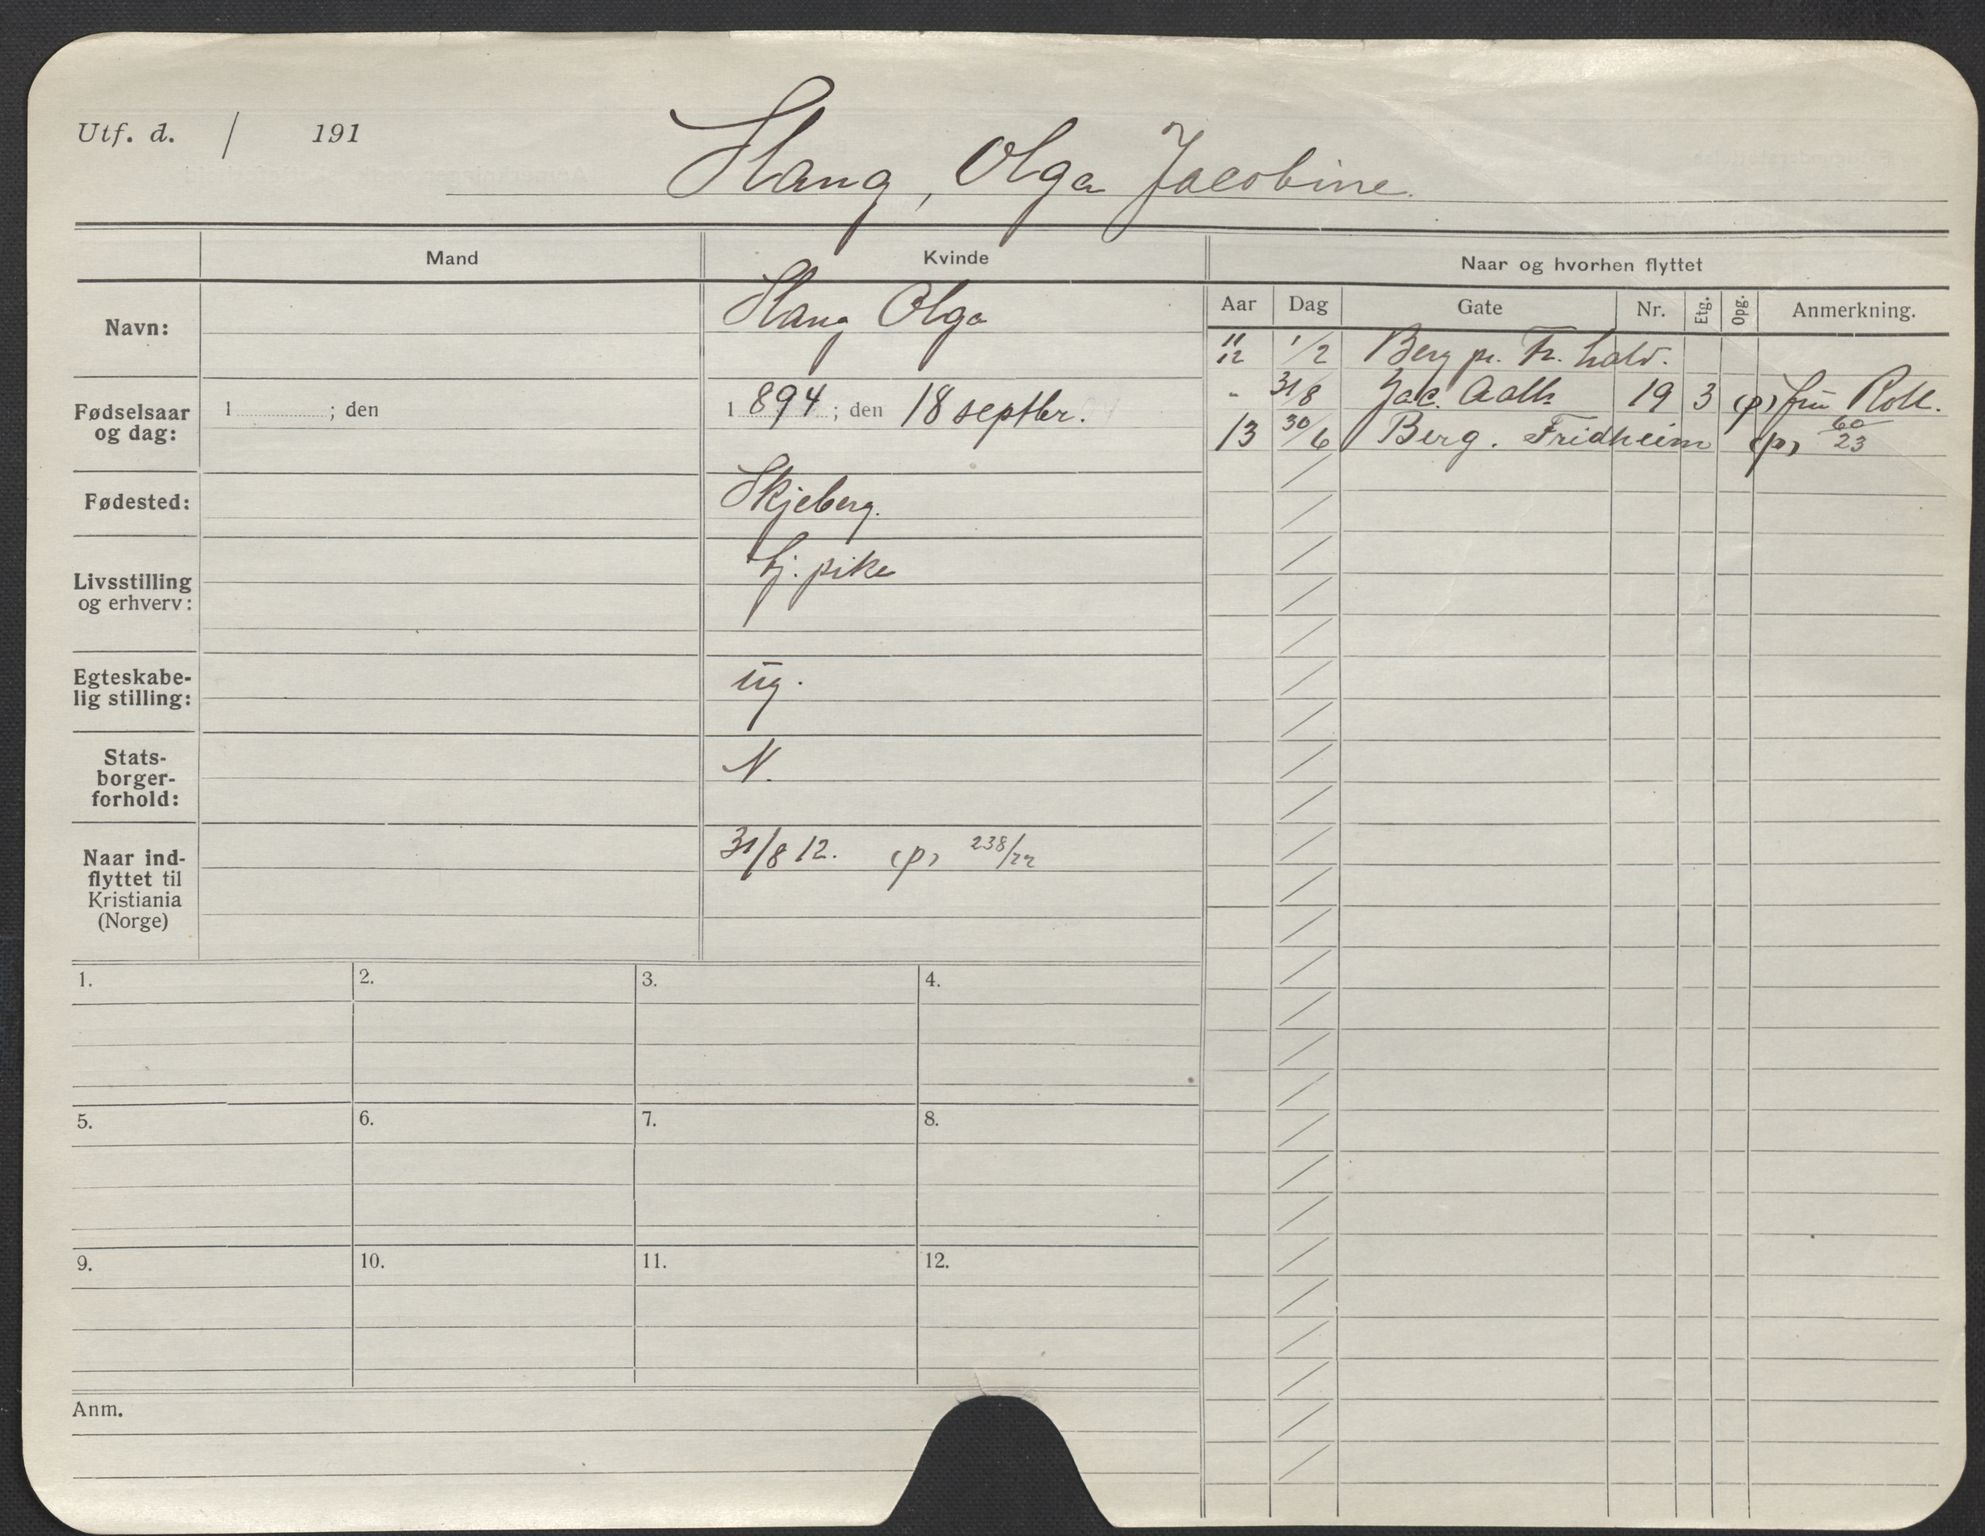 Utf. d. / 191
Hang, Olga Jacobine.
Mand Kvinde Naar og hvorhen flyttet
Navn: Hang Olga
Aar Dag Gate Nr. Etg. Opg. Anmerkning.
11/12 1/2 Berg pr. Fr. hald.
" 31/8 Jac. Aalls 19 3 (p) fru Roll.
13 30/6 Berg. Fridheim (p) 60/23
Fødselsaar
og dag: 1 ; den 1894 ; den 18 septbr.
Fødested: Skjeberg.
Livsstilling
og erhverv: tj. pike
Egteskabe-
lig stilling: ug.
Stats-
borger-
forhold: N.
Naar ind-
flyttet til
Kristiania
(Norge) 31/8 12. (p) 238/22
1. 2. 3. 4.
5. 6. 7. 8.
9. 10. 11. 12.
Anm.